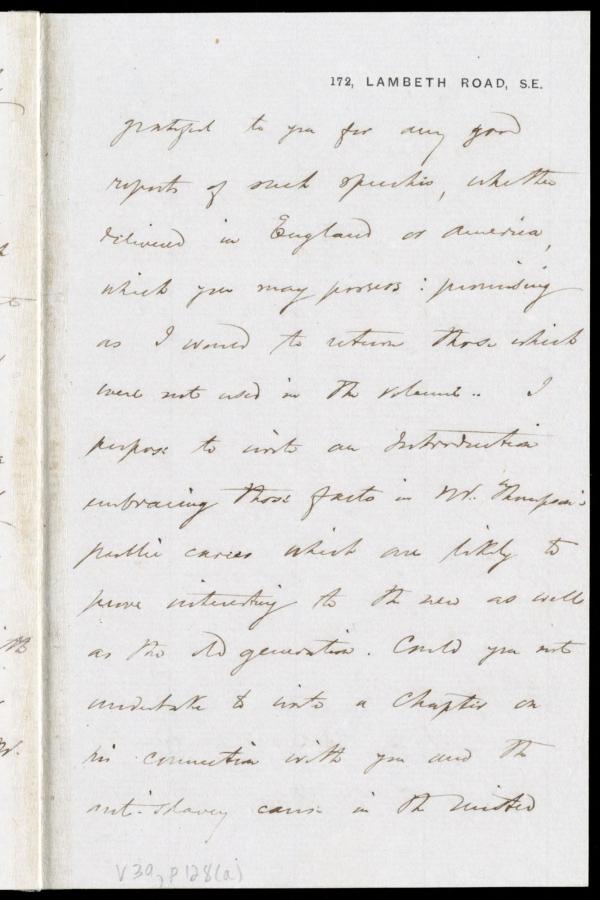 172, LAMBETH ROAD, S.E.
grateful to you for any good
reports of such speeches, whether
delivered in England or America,
which you may possess: promising
as I would to return those which
were not used in the volume.. I
purpose to write an Introduction
embracing those facts in Mr. Thompson's
public career which are likely to
prove interesting to the new as well
as the old generation. Could you not
undertake to write a Chapter on
his connection with you and the
anti-slavery cause in the United
V39, P128(a)